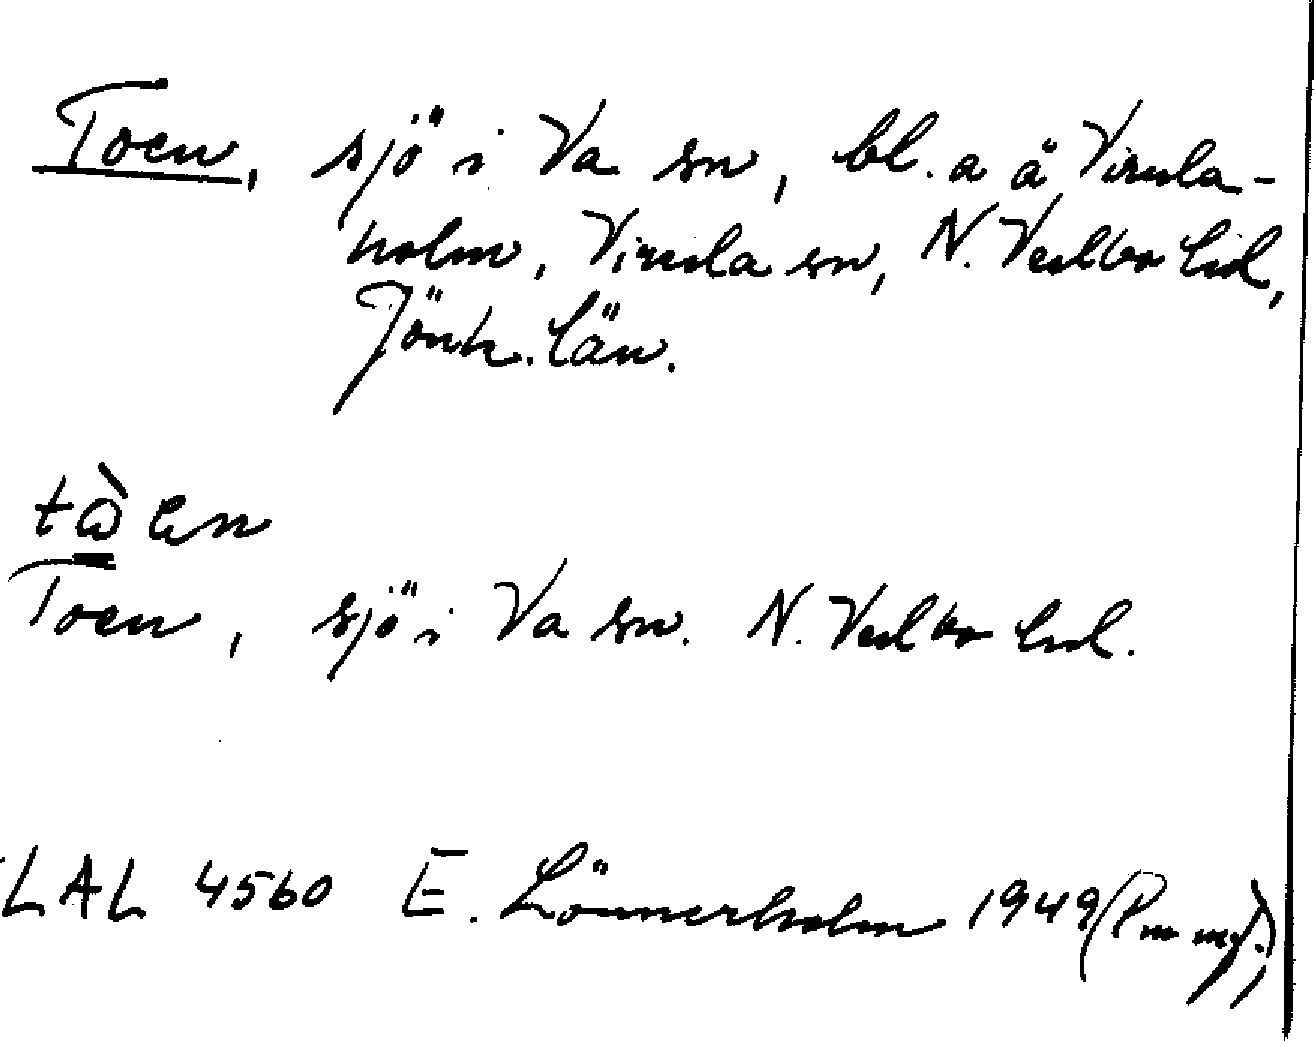 Toen, sjö i Va sn, bl. a å Virsla-
holm, Virsla sn, N. Vedbo hd,
Jönk. län.
tà̱ en
Toen, sjö i Va sn. N. Vedbo hd.
LAL 4560 E. Lönnerholm 1949